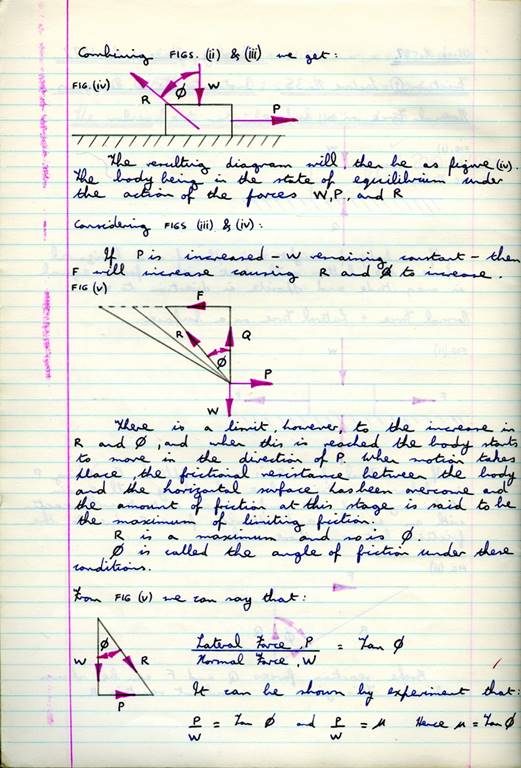 Combining FIGS. (ii) & (iii) we get:
FIG.(iv)
R
Ø
W
P
The resulting diagram will then be as figure (iv).
The body being in the state of equilibrium under
the action of the forces W, P, and R
Considering FIGS (iii) & (iv):
If P is increased - W remaining constant - then
F will increase causing R and Ø to increase.
FIG (v)
F
R
Q
Ø
P
W
There is a limit, however, to the increase in
R and Ø, and when this is reached the body starts
to move in the direction of P. When motion takes
place, the frictional resistance between the body
and the horizontal surface has been overcome and
the amount of friction at this stage is said to be
the maximum of limiting friction.
R is a maximum and so is Ø.
Ø is called the angle of friction under these
conditions.
From FIG (v) we can say that:
Ø
W
R
P
Lateral Force, P / Normal Force, W = Tan Ø
It can be shown by experiment that:
P/W = Tan Ø and P/W = µ Hence µ = Tan Ø